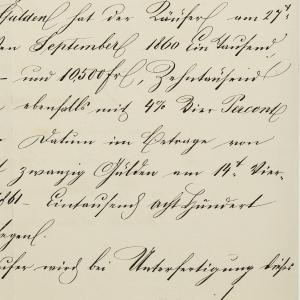 Gulden hat der Käufer am 27t.
ten September 1860 Ein Tausend
– und 10,500 fr, Zehntausend
ebenfalls mit 4% Vier Percent
Datum im Betrage von
zwanzig Gulden am 14t. Vier-
1861 – Eintausend acht Hundert
legen.
ufer wird bei Unterfertigung dieses